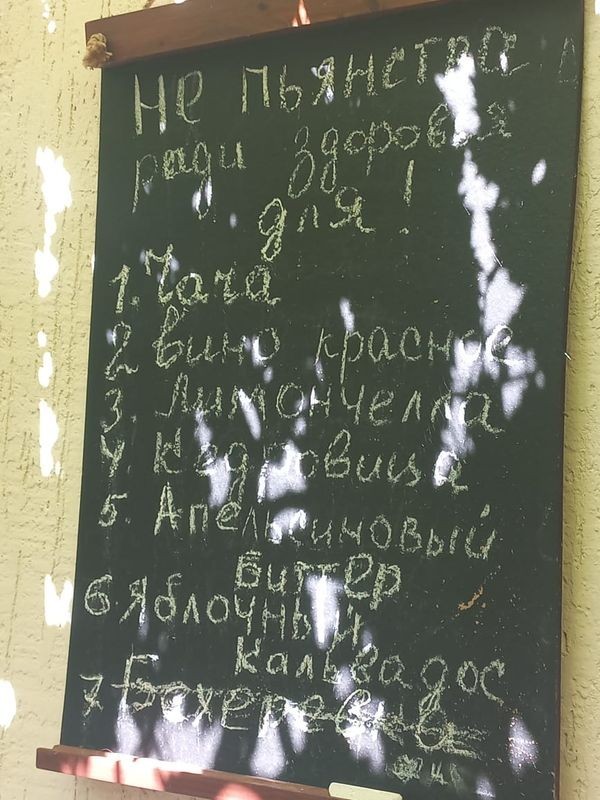 Не пьянства
ради здоровья
для!
1. Чача
2 вино красное
3. Лимончелла
4. Кедровица
5. Апельсиновый
Биттер
6. Яблочный
Кальвадос
7